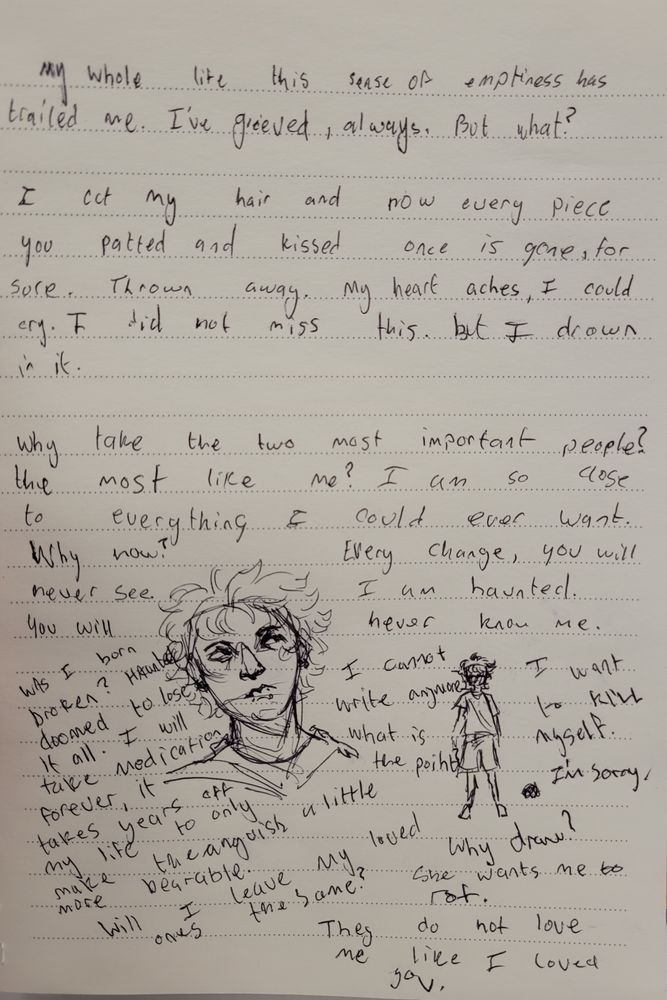 My whole life this sense of emptiness has
trailed me. I've greeved, always. But what?
I cut my hair and now every piece
you patted and kissed once is gone, for
sure. Thrown away. My heart aches, I could
cry. I did not miss this. but I drown
in it.
Why take the two most important people?
the most like me? I am so close
to everything I could ever want.
Why now? Every change, you will
never see. I am haunted.
You will never know me.
was I born
broken? Haunted
doomed to lose
it all. I will
take medication
forever, it
takes years off
my life to only
make the anguish a little
more bearable.
Will I leave my loved
ones the same?
I cannot
write anymore
what is
the point?
I want
to kill
myself.
I'm sorry.
Why draw?
She wants me to
rot.
They do not love
me like I loved
you.